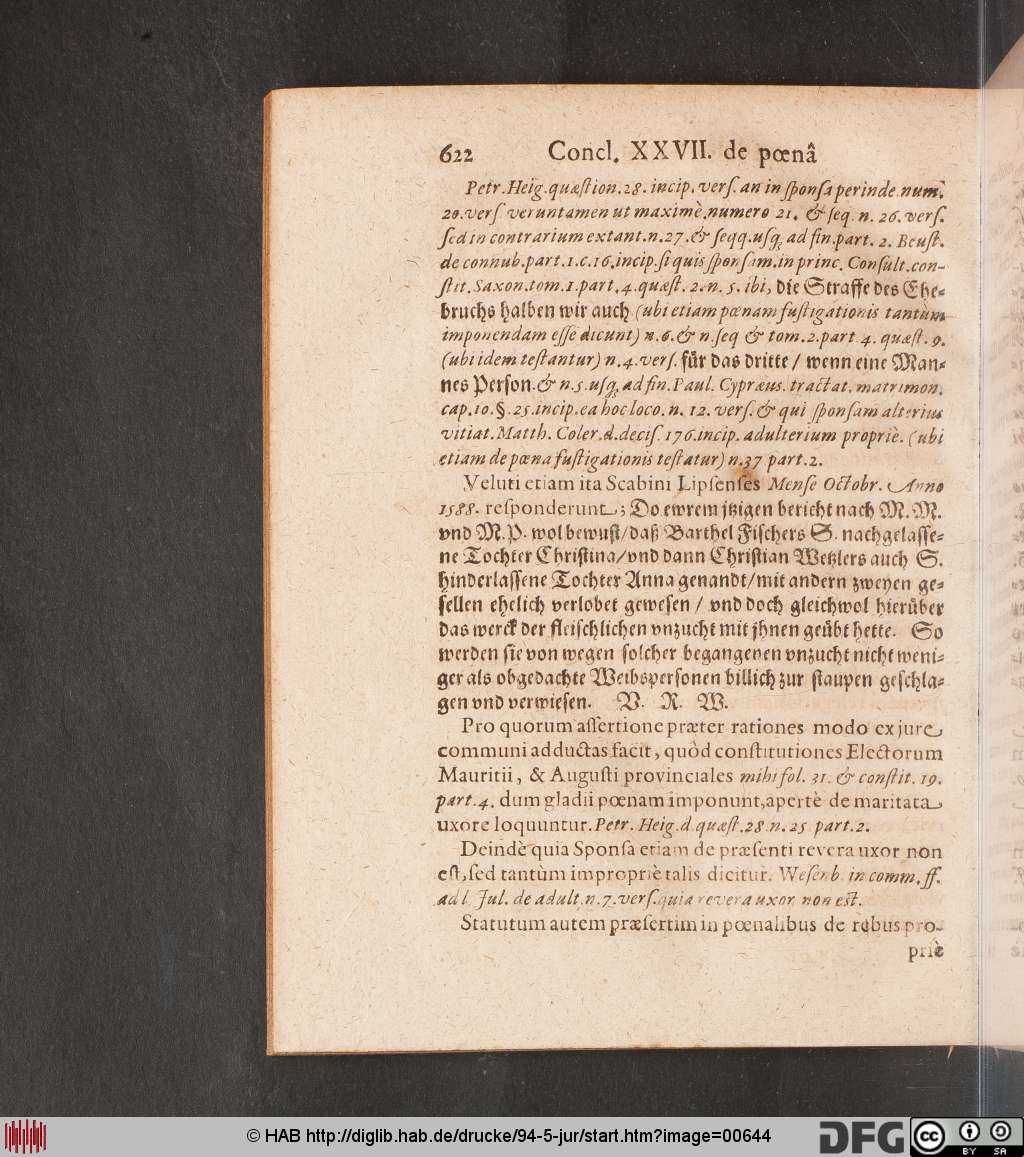 622 Concl. XXVII. de pœnâ
Petr. Heig. quæſtion. 28. incip. verſ. an in ſponſa perinde. num.
20. verſ veruntamen ut maximè. numero 21. & ſeq. n. 26. verſ.
ſed in contrarium extant. n. 27. & ſeqq. uſq; ad fin. part. 2. Beuſt.
de connub. part. 1. c. 16. incip. ſi quis ſponſam. in princ. Conſult. con-
ſtit. Saxon. tom. 1. part. 4. quæſt. 2. n. 5. ibi, die Straffe des Ehe-
bruchs halben wir auch (ubi etiam pœnam fuſtigationis tantùm
imponendam eſſe dicunt) n. 6. & n. ſeq & tom. 2. part. 4. quæſt. 9.
(ubi idem teſtantur) n. 4. verſ. für das dritte / wenn eine Man-
nes Perſon. & n. 5. uſq; ad fin. Paul. Cypræus. tractat. matrimon.
cap. 10. §. 25. incip. ea hoc loco. n. 12. verſ. & qui ſponſam alterius
vitiat. Matth. Coler. d. deciſ. 176. incip. adulterium propriè. (ubi
etiam de pœna fuſtigationis teſtatur) n. 37 part. 2.
Veluti etiam ita Scabini Lipſenſes Menſe Octobr. Anno
1588. reſponderunt; Do ewrem jtzigen bericht nach M. M.
vnd M. P. wol bewuſt / daß Barthel Fiſchers S. nachgelaſſe-
ne Tochter Chriſtina / vnd dann Chriſtian Wetzlers auch S.
hinderlaſſene Tochter Anna genandt / mit andern zweyen ge-
ſellen ehelich verlobet geweſen / vnd doch gleichwol hierüber
das werck der fleiſchlichen vnzucht mit jhnen geübt hette. So
werden ſie von wegen ſolcher begangenen vnzucht nicht weni-
ger als obgedachte Weibsperſonen billich zur ſtaupen geſchla-
gen vnd verwieſen. V. R. W.
Pro quorum aſſertione præter rationes modo ex jure
communi adductas facit, quòd conſtitutiones Electorum
Mauritii, & Auguſti provinciales mihi fol. 31. & conſtit. 19.
part. 4. dum gladii pœnam imponunt, apertè de maritata
uxore loquuntur. Petr. Heig. d. quæſt. 28. n. 25 part. 2.
Deindè quia Sponſa etiam de præſenti revera uxor non
eſt, ſed tantùm impropriè talis dicitur. Weſenb. in comm. ff.
ad l. Jul. de adult. n. 7. verſ. quia revera uxor non eſt.
Statutum autem præſertim in pœnalibus de rebus pro-
priè
© HAB http://diglib.hab.de/drucke/94-5-jur/start.htm?image=00644
DFG cc BY SA